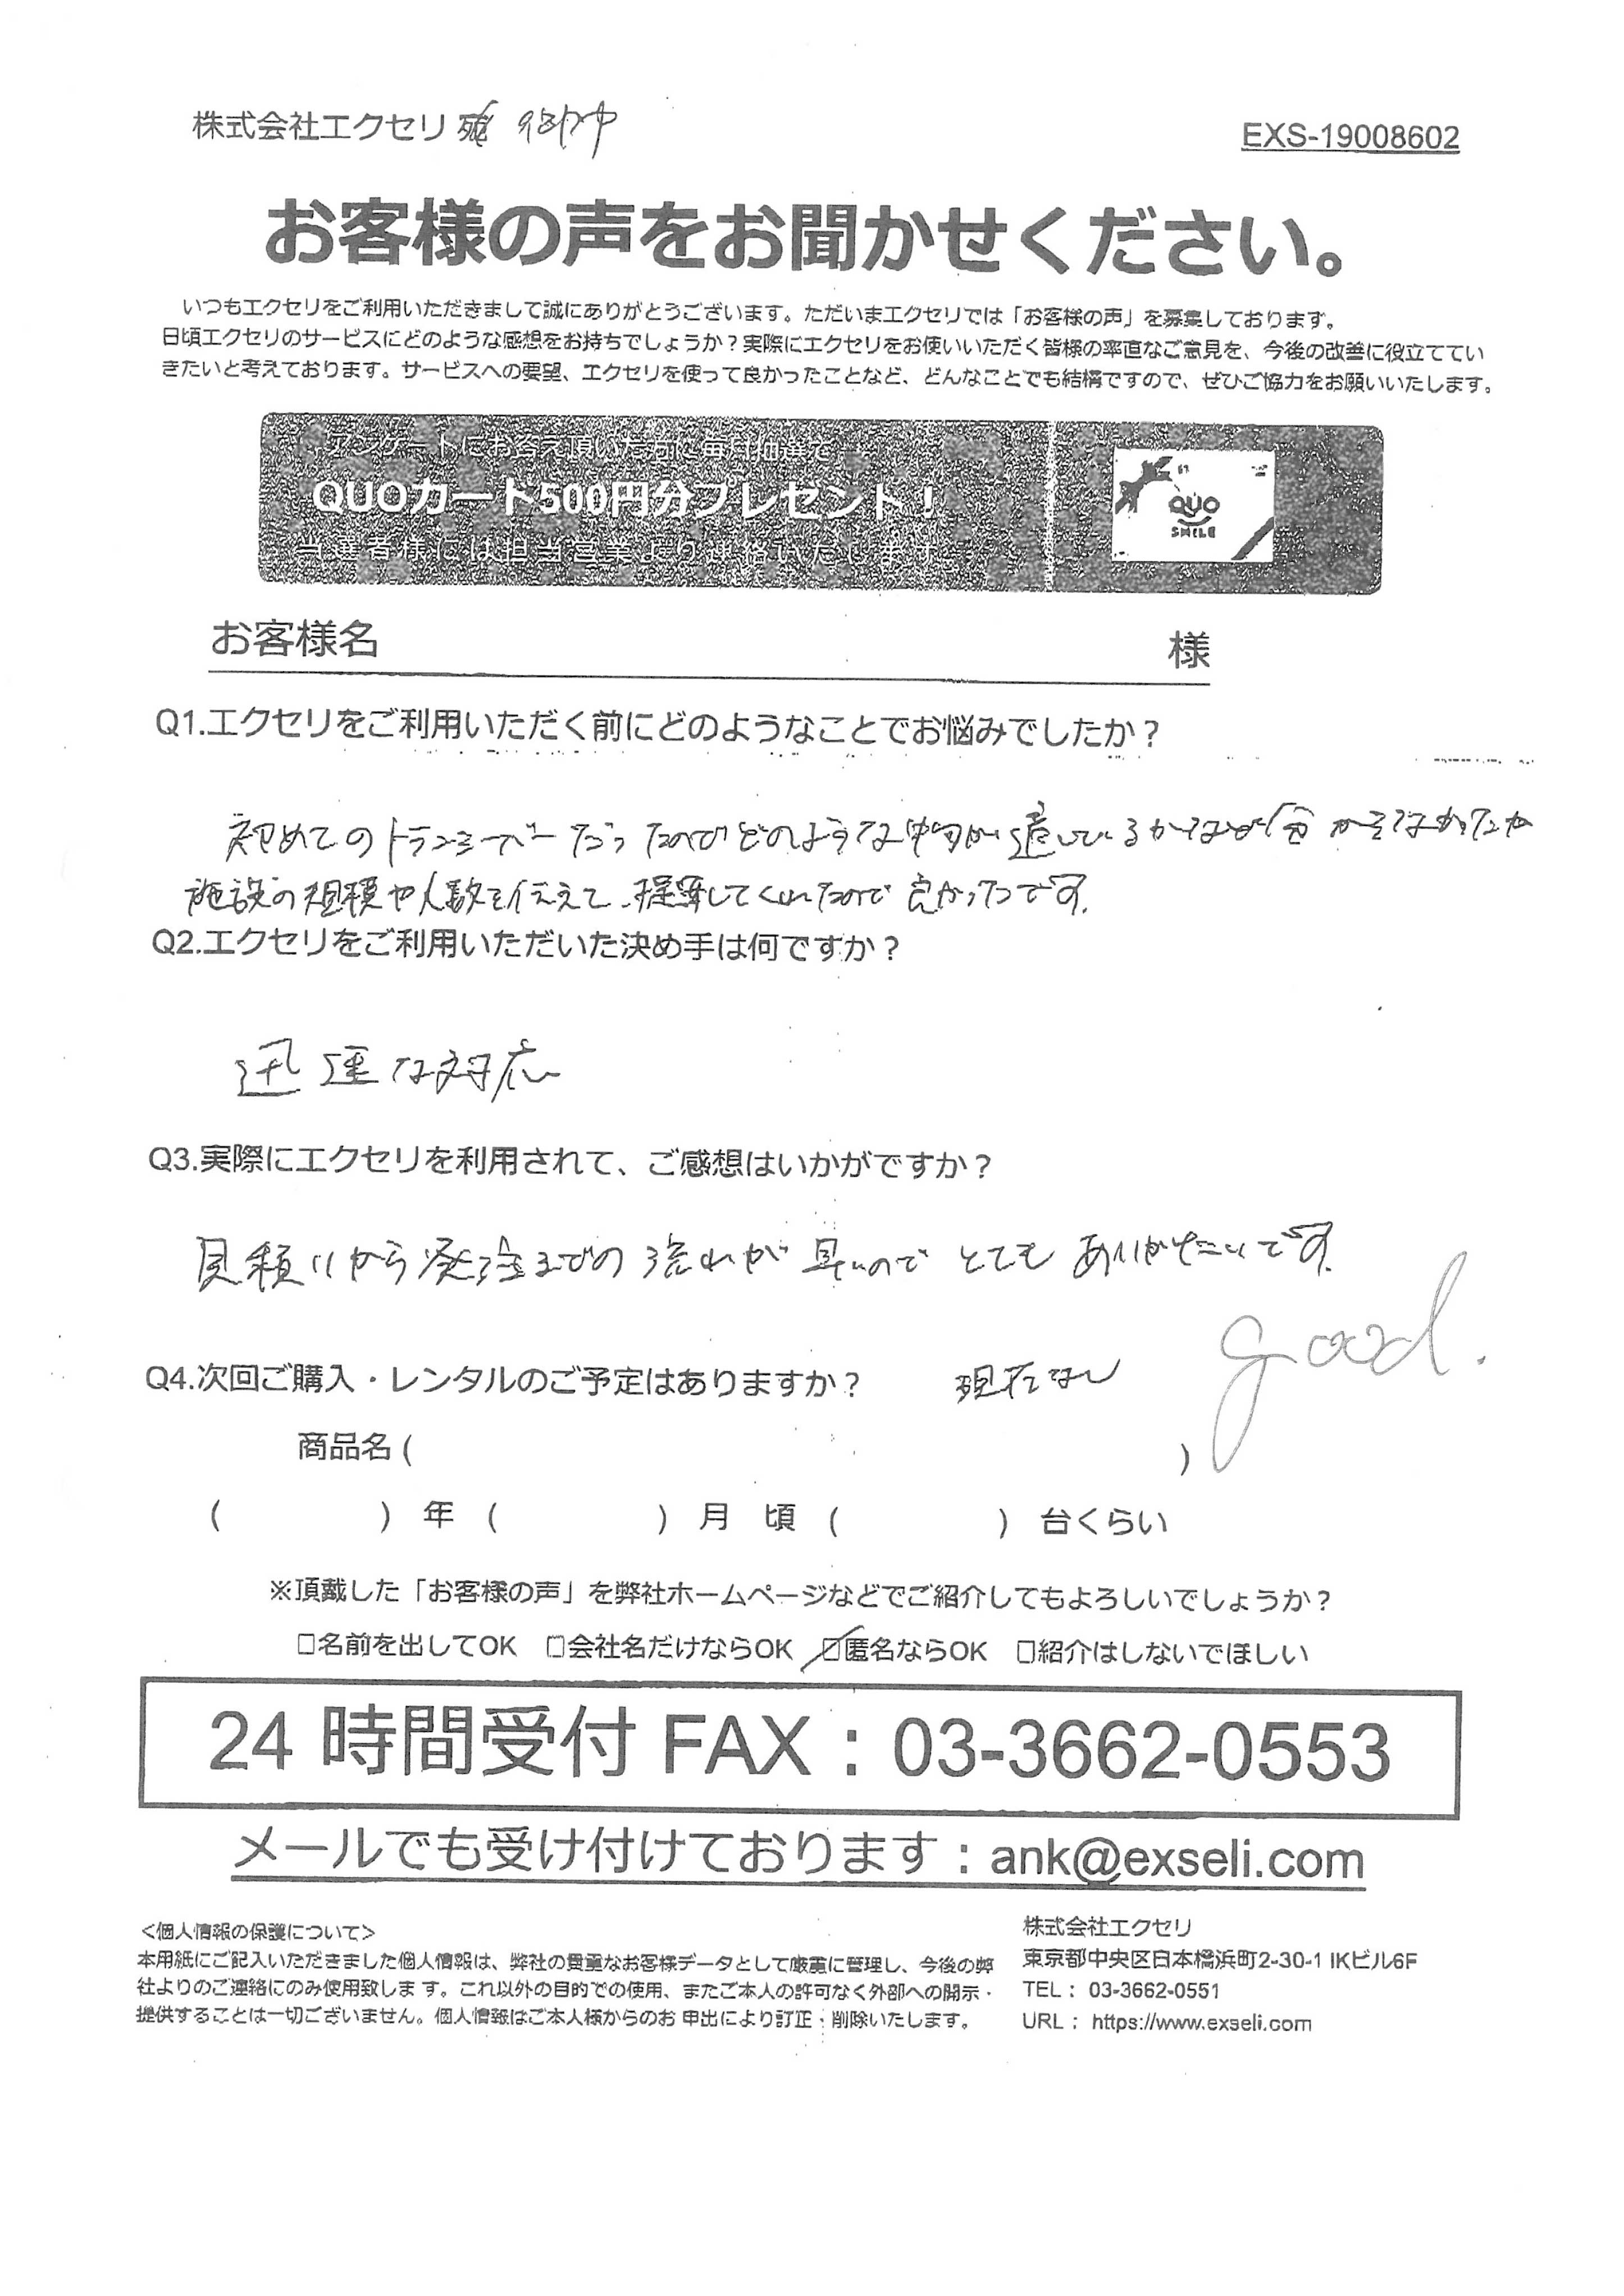 株式会社エクセリ 宛 御中
EXS-19008602
お客様の声をお聞かせください。
いつもエクセリをご利用いただきまして誠にありがとうございます。ただいまエクセリでは「お客様の声」を募集しております。
日頃エクセリのサービスにどのような感想をお持ちでしょうか？実際にエクセリをお使いいただく皆様の率直なご意見を、今後の改善に役立ててい
きたいと考えております。サービスへの要望、エクセリを使って良かったことなど、どんなことでも結構ですので、ぜひご協力をお願いいたします。
アンケートにお答え頂いた方に毎月抽選で
QUOカード500円分プレゼント！
当選者様には担当営業より連絡いたします
QUO
SMILE
お客様名 様
Q1.エクセリをご利用いただく前にどのようなことでお悩みでしたか？
初めてのトランシーバーだったのでどのような物が適しているかなが分からなかったが
施設の規模や人数を伝えて、提案してくれたので良かったです。
Q2.エクセリをご利用いただいた決め手は何ですか？
迅速な対応
Q3.実際にエクセリを利用されて、ご感想はいかがですか？
見積りから発注までの流れが早いのでとてもありがたいです。
good.
Q4.次回ご購入・レンタルのご予定はありますか？ 現在なし
商品名 ( )
( ) 年 ( ) 月 頃 ( ) 台くらい
※頂戴した「お客様の声」を弊社ホームページなどでご紹介してもよろしいでしょうか？
□名前を出してOK □会社名だけならOK ☑匿名ならOK □紹介はしないでほしい
24 時間受付 FAX：03-3662-0553
メールでも受け付けております：ank@exseli.com
＜個人情報の保護について＞
本用紙にご記入いただきました個人情報は、弊社の貴重なお客様データとして厳重に管理し、今後の弊
社よりのご連絡にのみ使用致します。これ以外の目的での使用、またご本人の許可なく外部への開示・
提供することは一切ございません。個人情報はご本人様からのお 申出により訂正・削除いたします。
株式会社エクセリ
東京都中央区日本橋浜町2-30-1 IKビル6F
TEL： 03-3662-0551
URL： https://www.exseli.com